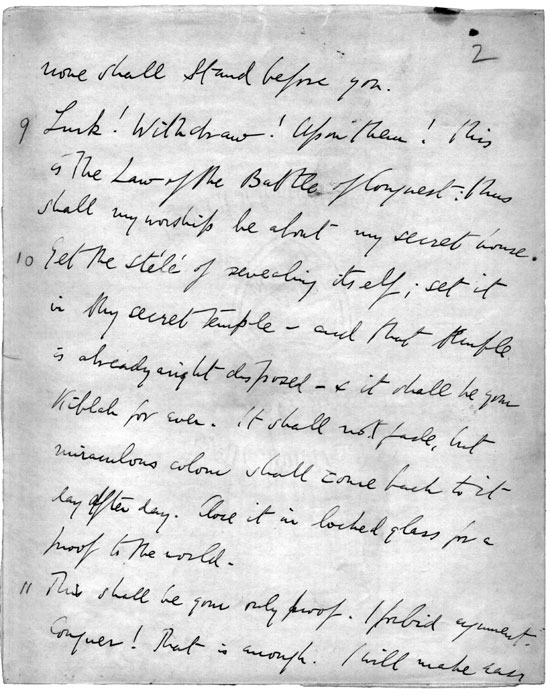 2
none shall stand before you.
9 Lurk! Withdraw! Upon them! this
is the Law of the Battle of Conquest: thus
shall my worship be about my secret house.
10 Get the stélé of revealing itself; set it
in thy secret temple - and that temple
is already aright disposed - & it shall be your
Kiblah for ever. It shall not fade, but
miraculous colour shall come back to it
day after day. Close it in locked glass for a
proof to the world.
11 This shall be your only proof. I forbid argument.
Conquer! That is enough. I will make easy